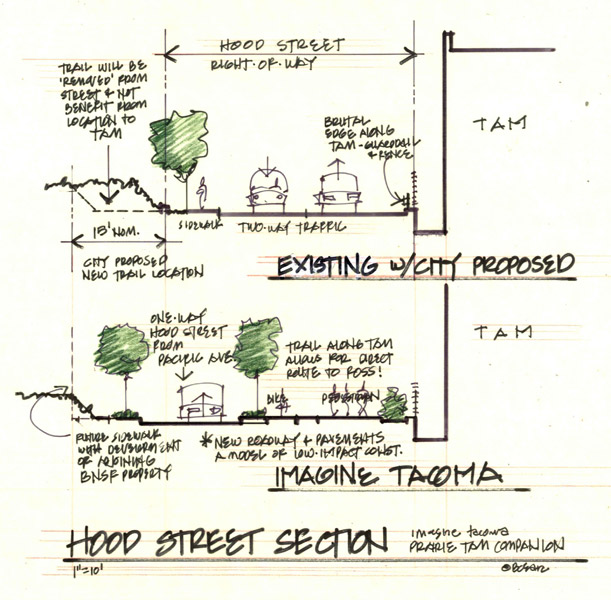 HOOD STREET
RIGHT·OF·WAY
TRAIL WILL BE
'REMOVED' FROM
STREET & NOT
BENEFIT FROM
LOCATION TO
TAM
BRUTAL
EDGE ALONG
TAM - GUARDRAIL
& FENCE
TAM
SIDEWALK
TWO-WAY TRAFFIC
15' NOM.
CITY PROPOSED
NEW TRAIL LOCATION
EXISTING W/CITY PROPOSED
ONE-WAY
HOOD STREET
FROM
PACIFIC AVE.
TRAIL ALONG TAM
ALLOWS FOR DIRECT
ROUTE TO FOSS!
TAM
BIKE
PEDESTRIAN
FUTURE SIDEWALK
WITH DEVELOPMENT
OF ADJOINING
BNSF PROPERTY
* NEW ROADWAY & PAVEMENTS
A MODEL OF LOW-IMPACT CONST.
IMAGINE TACOMA
HOOD STREET SECTION
imagine tacoma
PRARIE TAM COMPANION
1"=10'